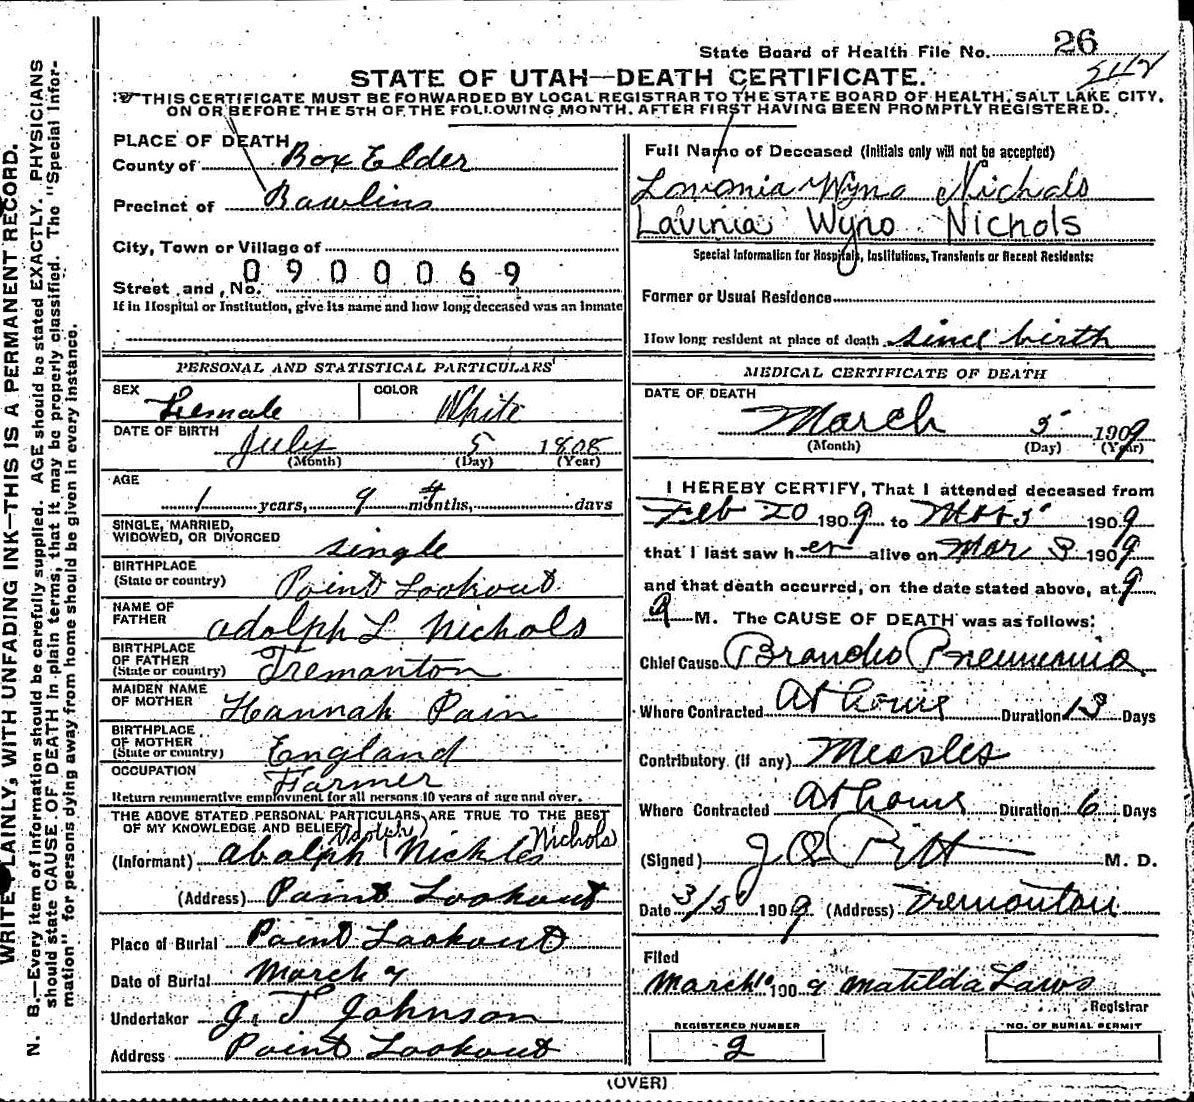 State Board of Health File No. 26
STATE OF UTAH—DEATH CERTIFICATE.
THIS CERTIFICATE MUST BE FORWARDED BY LOCAL REGISTRAR TO THE STATE BOARD OF HEALTH, SALT LAKE CITY,
ON OR BEFORE THE 5TH OF THE FOLLOWING MONTH, AFTER FIRST HAVING BEEN PROMPTLY REGISTERED.
WRITE PLAINLY, WITH UNFADING INK—THIS IS A PERMANENT RECORD.
N. B.—Every item of information should be carefully supplied. AGE should be stated EXACTLY. PHYSICIANS
should state CAUSE OF DEATH in plain terms, that it may be properly classified. The "Special Infor-
mation" for persons dying away from home should be given in every instance.
PLACE OF DEATH
County of Box Elder
Precinct of Rawlins
City, Town or Village of
0900069
Street and No.
If in Hospital or Institution, give its name and how long deceased was an inmate
PERSONAL AND STATISTICAL PARTICULARS
SEX Female COLOR White
DATE OF BIRTH July 5 1808
(Month) (Day) (Year)
AGE
1 years, 9 4 months, days
SINGLE, MARRIED,
WIDOWED, OR DIVORCED single
BIRTHPLACE
(State or country) Point Lookout
NAME OF
FATHER Adolph L Nichols
BIRTHPLACE
OF FATHER
(State or country) Tremanton
MAIDEN NAME
OF MOTHER Hannah Pain
BIRTHPLACE
OF MOTHER
(State or country) England
OCCUPATION Farmer
Return remunerative employment for all persons 10 years of age and over.
THE ABOVE STATED PERSONAL PARTICULARS ARE TRUE TO THE BEST
OF MY KNOWLEDGE AND BELIEF
Adolph Nichols
(Informant) Abolph Nickles
(Address) Point Lookout
Place of Burial Point Lookout
Date of Burial March 7
Undertaker J. T Johnson
Address Point Lookout
Full Name of Deceased (Initials only will not be accepted)
Lovonia Wyno Nichols
Lavinia Wyno Nichols
Special Information for Hospitals, Institutions, Transients or Recent Residents:
Former or Usual Residence
How long resident at place of death since birth
MEDICAL CERTIFICATE OF DEATH
DATE OF DEATH
March 5 1909
(Month) (Day) (Year)
I HEREBY CERTIFY, That I attended deceased from
Feb 20 1909 to Mar 5 1909
that I last saw her alive on Mar 3 1909
and that death occurred, on the date stated above, at 9
a M. The CAUSE OF DEATH was as follows:
Chief Cause Broncho Pneumonia
Where Contracted At home Duration 13 Days
Contributory (If any) Measles
Where Contracted At home Duration 6 Days
(Signed) M. D.
Date 3/5 1909 (Address) Tremonton
Filed
March 10 1909 Matilda Laws
Registrar
REGISTERED NUMBER
2
NO. OF BURIAL PERMIT
(OVER)